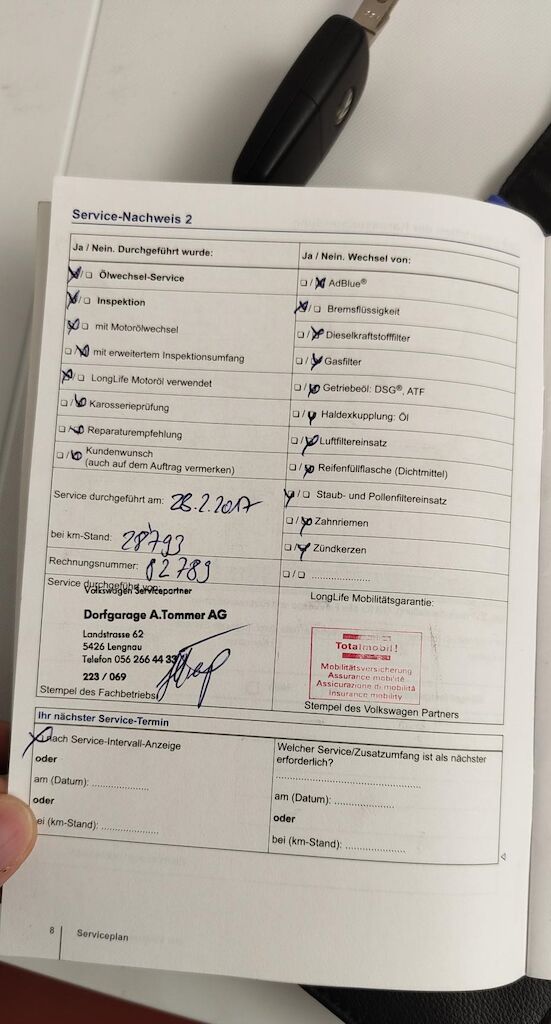 Service-Nachweis 2
Ja / Nein. Durchgeführt wurde:
☒/☐ Ölwechsel-Service
☒/☐ Inspektion
☒/☐ mit Motorölwechsel
☐/☒ mit erweitertem Inspektionsumfang
☒/☐ LongLife Motoröl verwendet
☐/☒ Karosserieprüfung
☐/☒ Reparaturempfehlung
☐/☒ Kundenwunsch
(auch auf dem Auftrag vermerken)
Service durchgeführt am: 28.2.2017
bei km-Stand: 28'793
Rechnungsnummer: 82789
Service durchgeführt von:
Volkswagen Servicepartner
Dorfgarage A.Tommer AG
Landstrasse 62
5426 Lengnau
Telefon 056 266 44 33
223 / 069
Stempel des Fachbetriebs
Ja / Nein. Wechsel von:
☐/☒ AdBlue®
☒/☐ Bremsflüssigkeit
☐/☒ Dieselkraftstofffilter
☐/☒ Gasfilter
☐/☒ Getriebeöl: DSG®, ATF
☐/☒ Haldexkupplung: Öl
☐/☒ Luftfiltereinsatz
☐/☒ Reifenfüllflasche (Dichtmittel)
☒/☐ Staub- und Pollenfiltereinsatz
☐/☒ Zahnriemen
☐/☒ Zündkerzen
☐/☐ .....................
LongLife Mobilitätsgarantie:
Totalmobil!
Mobilitätsversicherung
Assurance mobilité
Assicurazione di mobilità
Insurance mobility
Stempel des Volkswagen Partners
Ihr nächster Service-Termin
☒ nach Service-Intervall-Anzeige
oder
am (Datum): ....................
oder
bei (km-Stand): ....................
Welcher Service/Zusatzumfang ist als nächster
erforderlich?
..................................................
am (Datum): .....................
oder
bei (km-Stand): .....................
8 Serviceplan